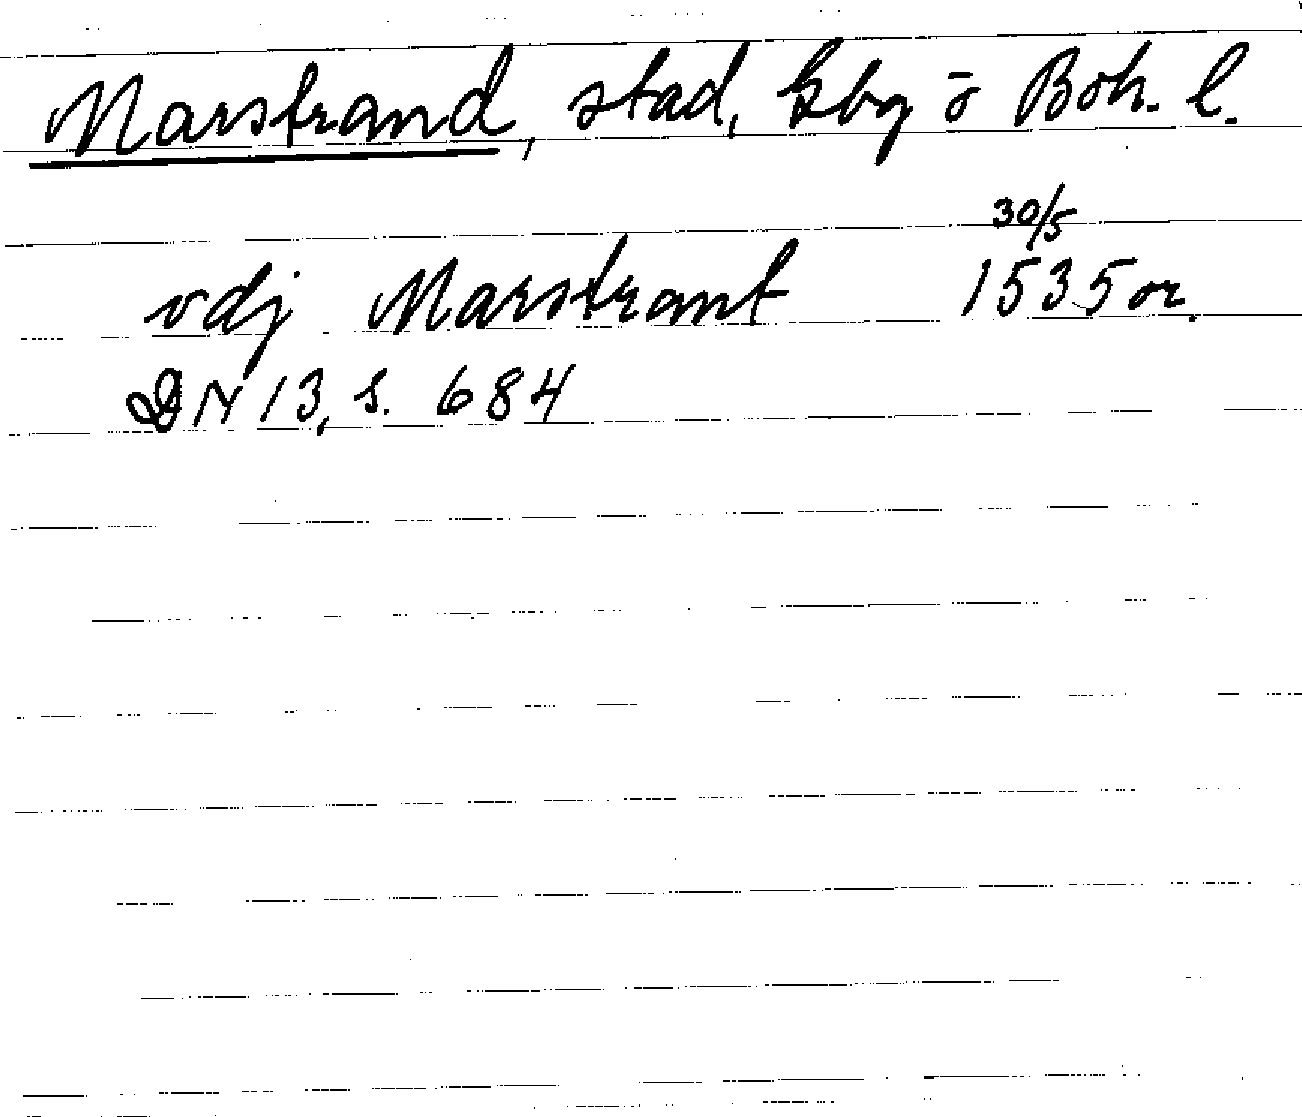 Marstrand, stad, Gbg o Boh. l.
30/5
vdj Marstrant 1535 or.
DN 13, s. 684